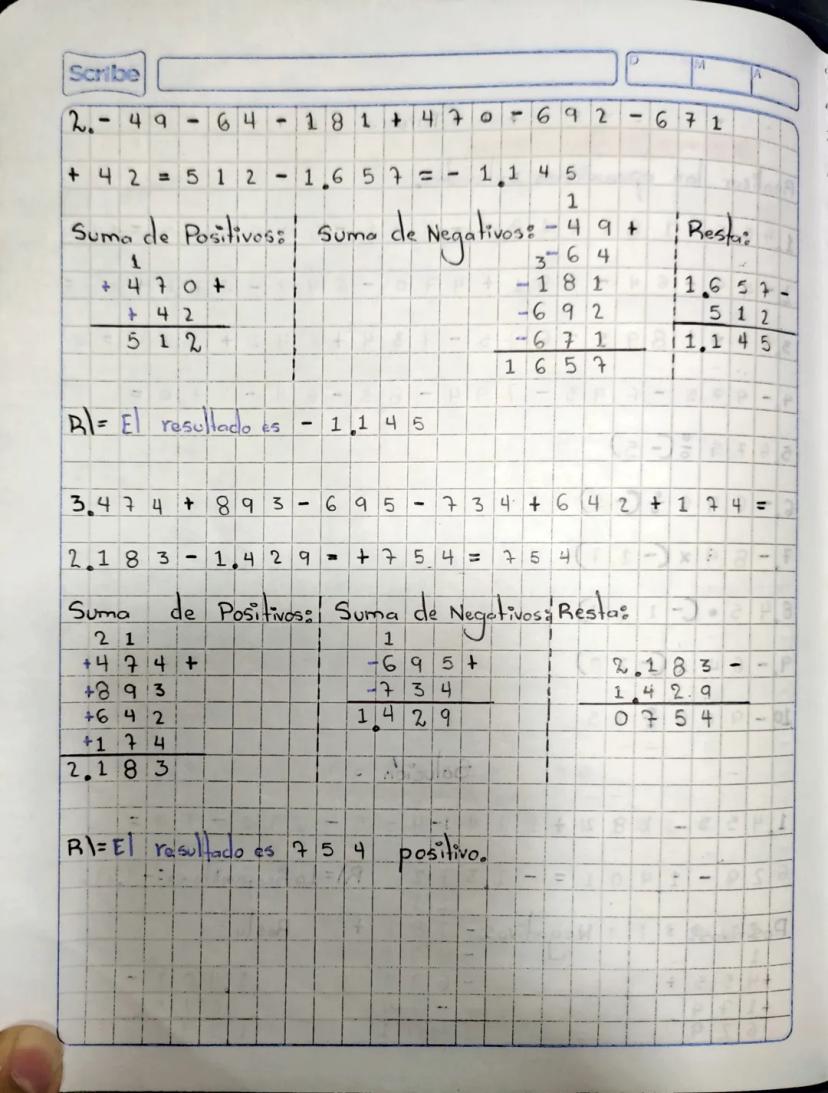 Scribe
D M A
2.- 49 - 64 - 181 + 470 - 692 - 671
+ 42 = 512 - 1.657 = - 1.145
Suma de Positivos:
1
+ 470 +
+ 42
512
Suma de Negativos:
1
- 49 +
3 - 64
- 181
- 692
- 671
1657
Resta:
1.657 -
512
1.145
R\= El resultado es - 1.145
3. 474 + 893 - 695 - 734 + 642 + 174 =
2.183 - 1.429 = + 754 = 754
Suma de Positivos:
2 1
+474 +
+893
+642
+174
2.183
Suma de Negativos:
1
-695 +
-734
1.429
Resta:
2.183 -
1.429
0754
R\= El resultado es 754 positivo.